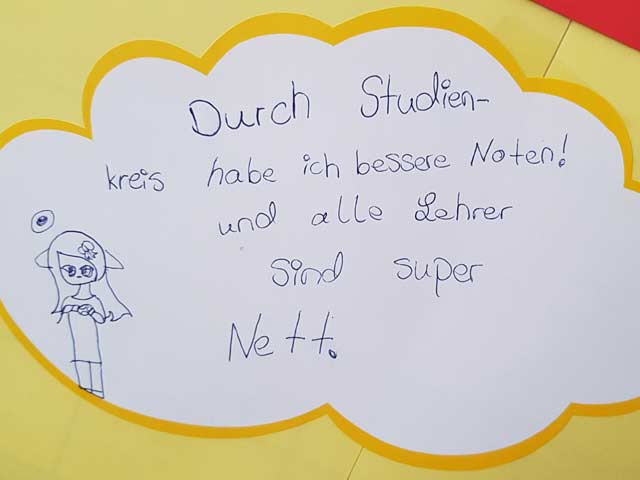 Durch Studien-
kreis habe ich bessere Noten!
und alle Lehrer
sind super
Nett.